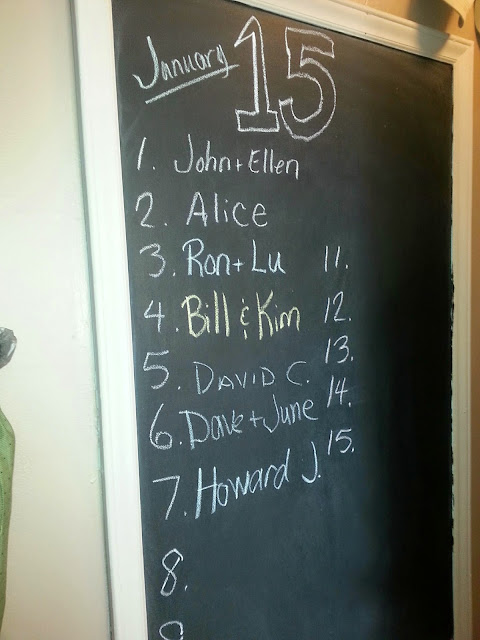 January 15
1. John + Ellen
2. Alice
3. Ron + Lu
4. Bill & Kim
5. DAVID C.
6. Dave + June
7. Howard J.
8.
11.
12.
13.
14.
15.